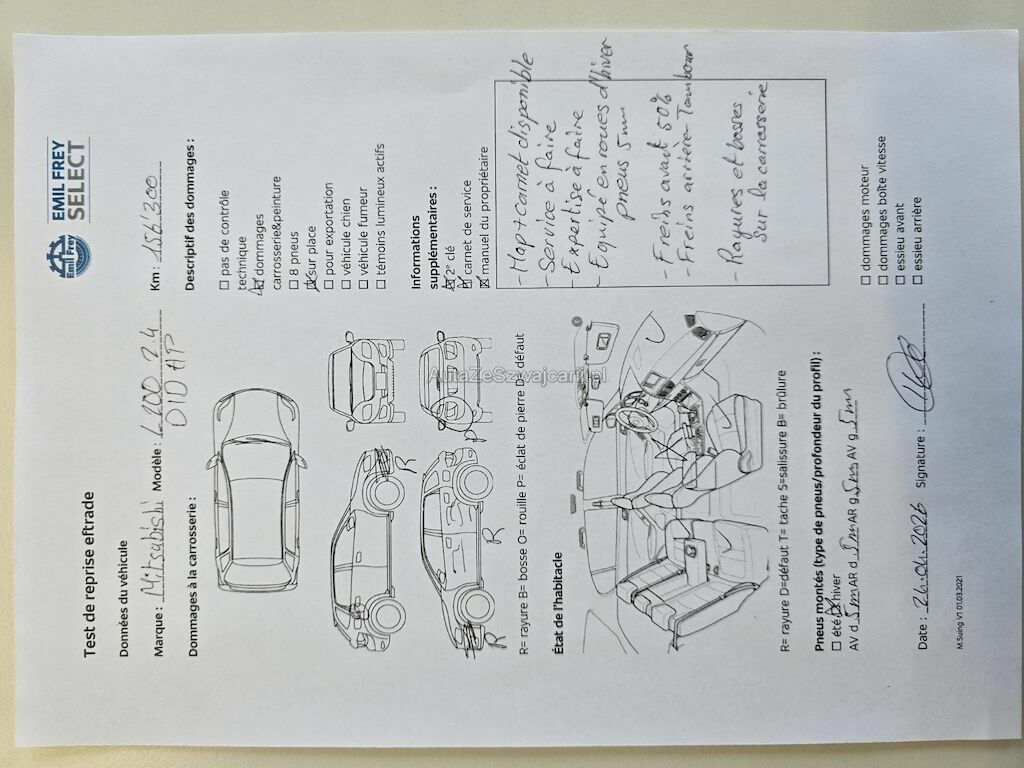 EMIL FREY
SELECT
Emil Frey
Test de reprise eftrade
Données du véhicule
Marque : Mitsubishi Modèle : L200 2.4 Km : 156'300
DID HP
Dommages à la carrosserie :
Descriptif des dommages :
☐ pas de contrôle
technique
☒ dommages
carrosserie&peinture
☐ 8 pneus
☒ sur place
☐ pour exportation
☐ véhicule chien
☐ véhicule fumeur
☐ témoins lumineux actifs
Informations
supplémentaires :
☒ 2e clé
☒ carnet de service
☒ manuel du propriétaire
R
R
R
P
R= rayure B= bosse O= rouille P= éclat de pierre D= défaut
État de l'habitacle
- Map + carnet disponible
- Service à faire
- Expertise à faire
- Equipé en roues d'hiver
pneus 5mm
- Freins avant 50%
- Freins arrière Tambour
- Rayures et bosses
sur la carrosserie.
R= rayure D=défaut T= tache S=salissure B= brûlure
Pneus montés (type de pneus/profondeur du profil) :
☐ été ☒ hiver
AV d 5mm AR d 5mm AR g 5mm AV g 5mm
☐ dommages moteur
☐ dommages boîte vitesse
☐ essieu avant
☐ essieu arrière
Date : 26.04.2026 Signature :
M.Suing V1 01.03.2021
AutaZeSzwajcarii.pl